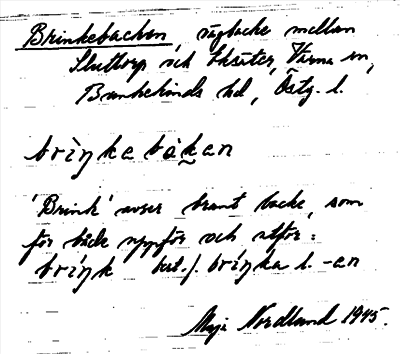 Brinkebacken, vägbacke mellan
Sluttorp och Ekäter, Värna sn,
Bankekinds hd, Östg. l.
brìŋkebàḵen
'Brink' avser brant backe, som
för både uppför och utför:
briŋk best. f. briŋka l. -en
Maja Nordlund 1945.